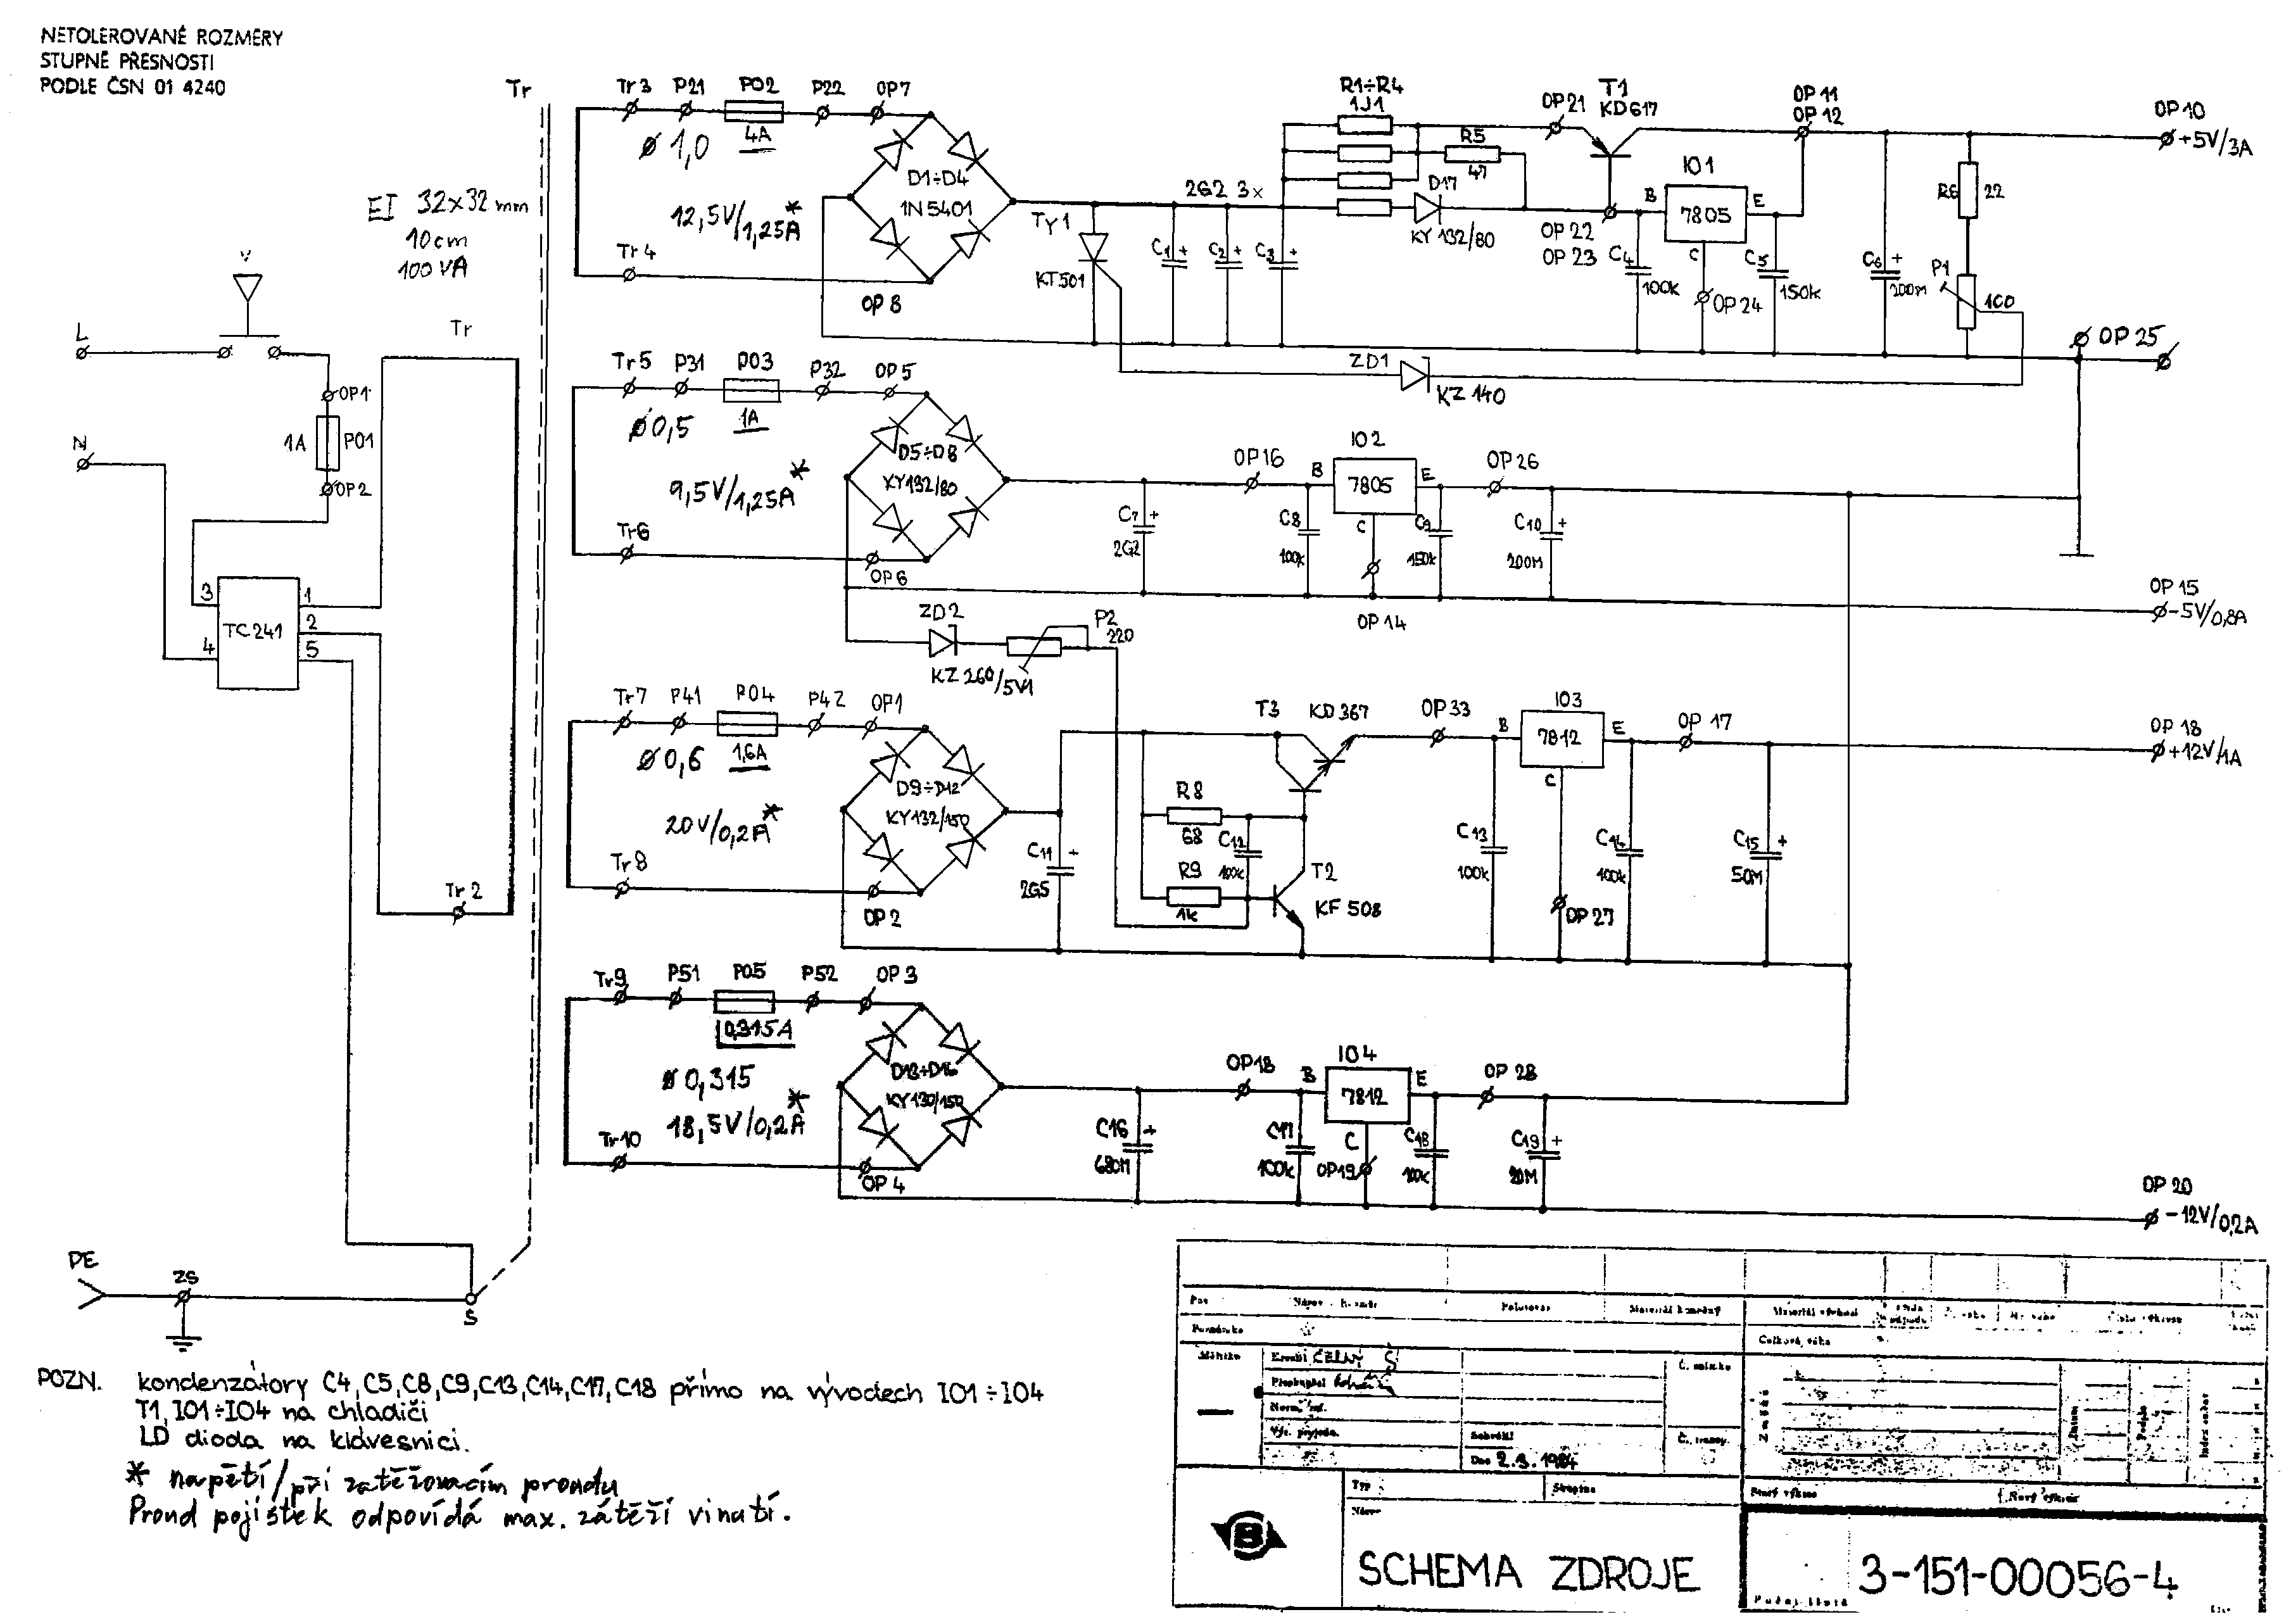 NETOLEROVANÉ ROZMĚRY
STUPNĚ PŘESNOSTI
PODLE ČSN 01 4240
Tr
EI 32x32 mm
10cm
100 VA
V
L
N
OP1
1A
PO1
OP2
Tr
3
4
TC241
1
2
5
Tr 2
PE
ZS
Š
Tr 3
P21
PO2
4A
P22
OP7
ø 1,0
12,5V/1,25A*
Tr 4
OP 8
D1÷D4
1N5401
TY1
KT501
2G2 3x
C1 +
C2 +
C3 +
R1÷R4
1J1
R5
47
D17
KY 132/80
OP21
T1
KD617
OP 22
OP 23
C4
100k
B
IO1
7805
E
C
OP24
C5
150k
OP 11
OP 12
C6 +
200M
R6
22
P1
100
OP 10
+5V/3A
OP 25
ZD1
KZ 140
Tr5
P31
PO3
1A
P32
OP5
ø0,5
9,5V/1,25A*
Tr6
OP6
D5÷D8
KY132/80
C7 +
2G2
OP16
C8
100k
B
IO2
7805
E
C
OP14
C9
150k
OP26
C10 +
200M
OP 15
-5V/0,8A
ZD2
KZ 260/5V1
P2
220
Tr7
P41
PO4
1,6A
P42
OP1
ø0,6
20V/0,2A*
Tr8
OP 2
D9÷D12
KY132/150
C11 +
2G5
R8
68
R9
1k
C12
100k
T3
KD367
T2
KF 508
OP33
C13
100k
B
IO3
7812
E
C
OP27
C14
100k
OP 17
C15 +
50M
OP 18
+12V/1A
Tr9
P51
PO5
0,315A
P52
OP 3
ø 0,315
18,5V/0,2A*
Tr10
OP 4
D13÷D16
KY130/150
C16 +
680M
OP18
C17
100k
B
IO4
7812
E
C
OP19
C18
100k
OP 28
C19 +
20M
OP 20
-12V/0,2A
POZN. kondenzátory C4,C5,C8,C9,C13,C14,C17,C18 přímo na vývodech IO1÷IO4
T1, IO1÷IO4 na chladiči
LD dioda na klávesnici.
* napětí/při zatěžovacím proudu
Proud pojistek odpovídá max. zátěží vinutí.
Poz
Polotovar
Materiál konečný
Materiál výchozí
Poznámka
Celková váha
Měřítko
Kreslil ČERNÝ Š
Přezkoušel
Norm. ref.
Výr. projedn.
Schválil
Dne 2.3.1984
Č. snímku
Č. transp.
Změna
Datum
Podpis
Index změny
Typ
Skupina
Starý výkres
Nový výkres
Název
B
SCHEMA ZDROJE
3-151-00056-4
Počet listů